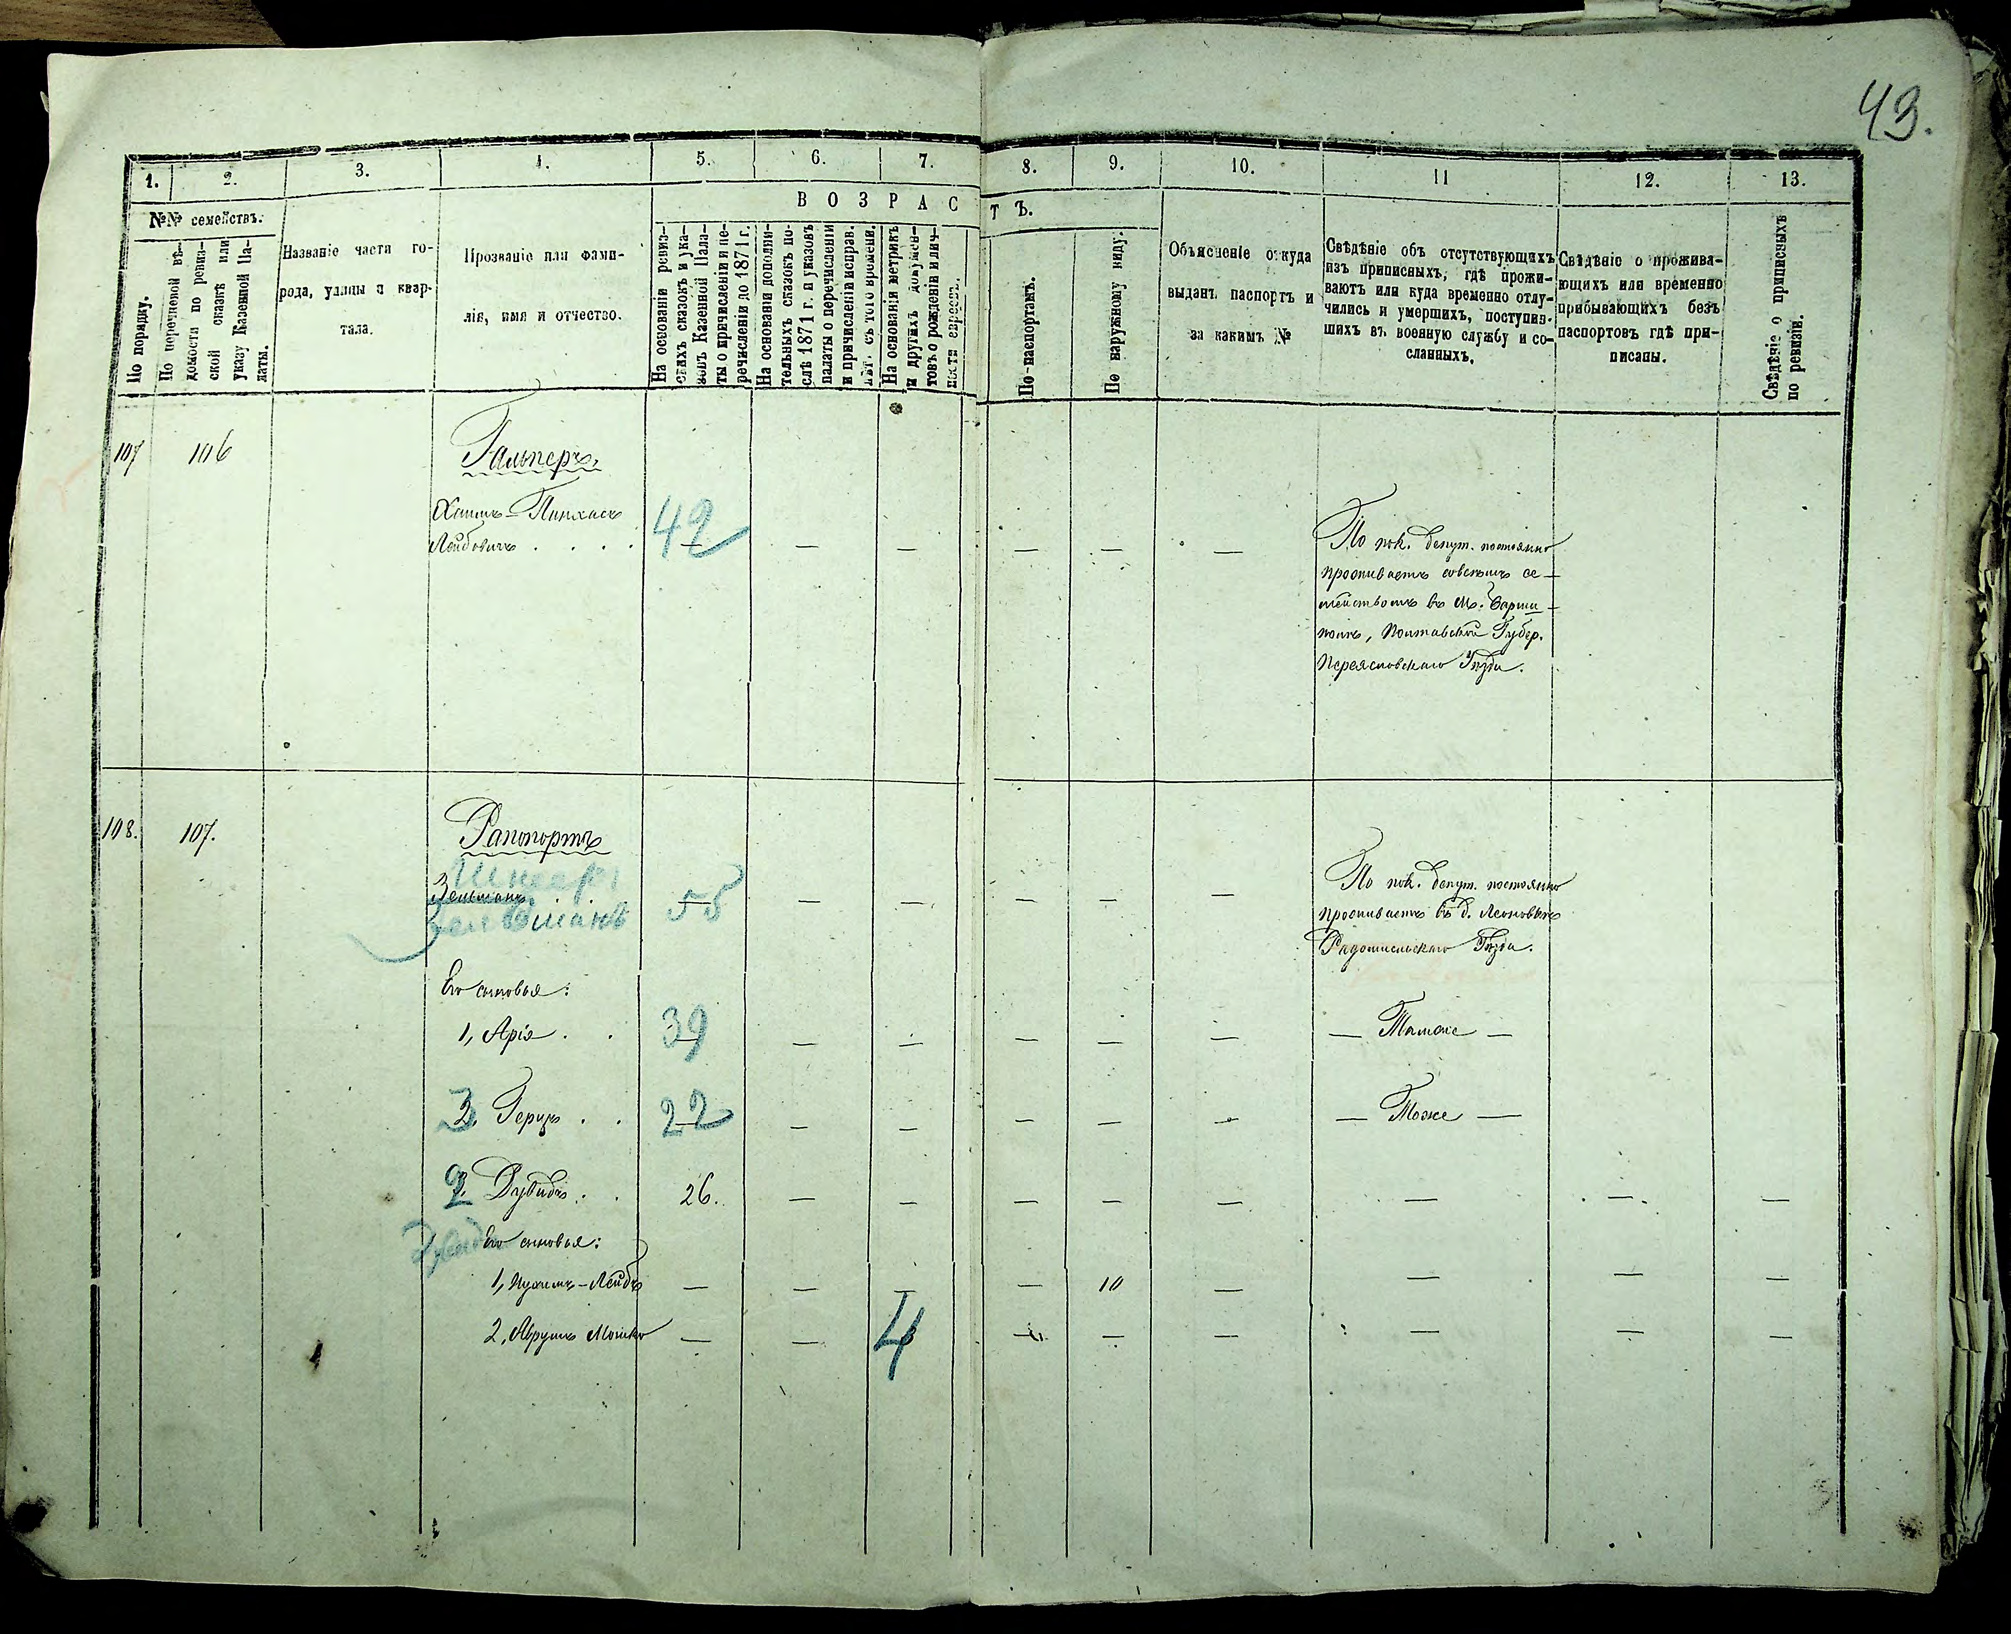 43.
1.
2.
3.
4.
5.
6.
7.
8.
9.
10.
11
12.
13.
№№ семействъ.
ВОЗРАСТЪ.
По порядку.
По перечневой вѣ-
домости по ревиз-
ской сказкѣ или
указу Казенной Па-
латы.
Названіе части го-
рода, улицы и квар-
тала.
Прозваніе или фами-
лія, имя и отчество.
На основаніи ревиз-
скихъ сказокъ и ука-
зовъ Казенной Пала-
ты о причисленіи и пе-
речисленіи до 1871 г.
На основаніи дополни-
тельныхъ сказокъ по-
слѣ 1871 г. и указовъ
палаты о перечисленіи
и причисленіи исправ.
лѣт. съ того времени.
На основаніи метрикъ
и другихъ докумен-
товъ о рожденіи и лич-
ности евреевъ.
По паспортамъ.
По наружному виду.
Объясненіе откуда
выданъ паспортъ и
за какимъ №
Свѣдѣніе объ отсутствующихъ
изъ приписныхъ, гдѣ прожи-
ваютъ или куда временно отлу-
чились и умершихъ, поступив-
шихъ въ военную службу и со-
сланныхъ.
Свѣдѣніе о прожива-
ющихъ или временно
прибывающихъ безъ
паспортовъ гдѣ при-
писаны.
Свѣдѣніе о приписныхъ
по ревизіи.
107
106
Гальперъ,
Хаимъ-Пинхасъ
Лейбовичъ . . . .
42
По пок. депут. постоянно
проживаетъ совсѣмъ се-
мействомъ въ м. Барыш-
полѣ, Полтавской Губер.
Переясловскаго Уѣзда.
108.
107.
Рапопортъ
Зельманъ
Зельманъ
55
По пок. депут. постоянно
проживаетъ въ д. Леоновкѣ
Радомысльскаго Уѣзда.
Его сыновья:
1, Арія . .
39
— Тамже —
3 Герцъ . .
22
— Тоже —
2 Дувидъ . .
26.
Его сыновья:
1, Нухимъ-Лейбъ
10
2, Аврумъ Мошко
4